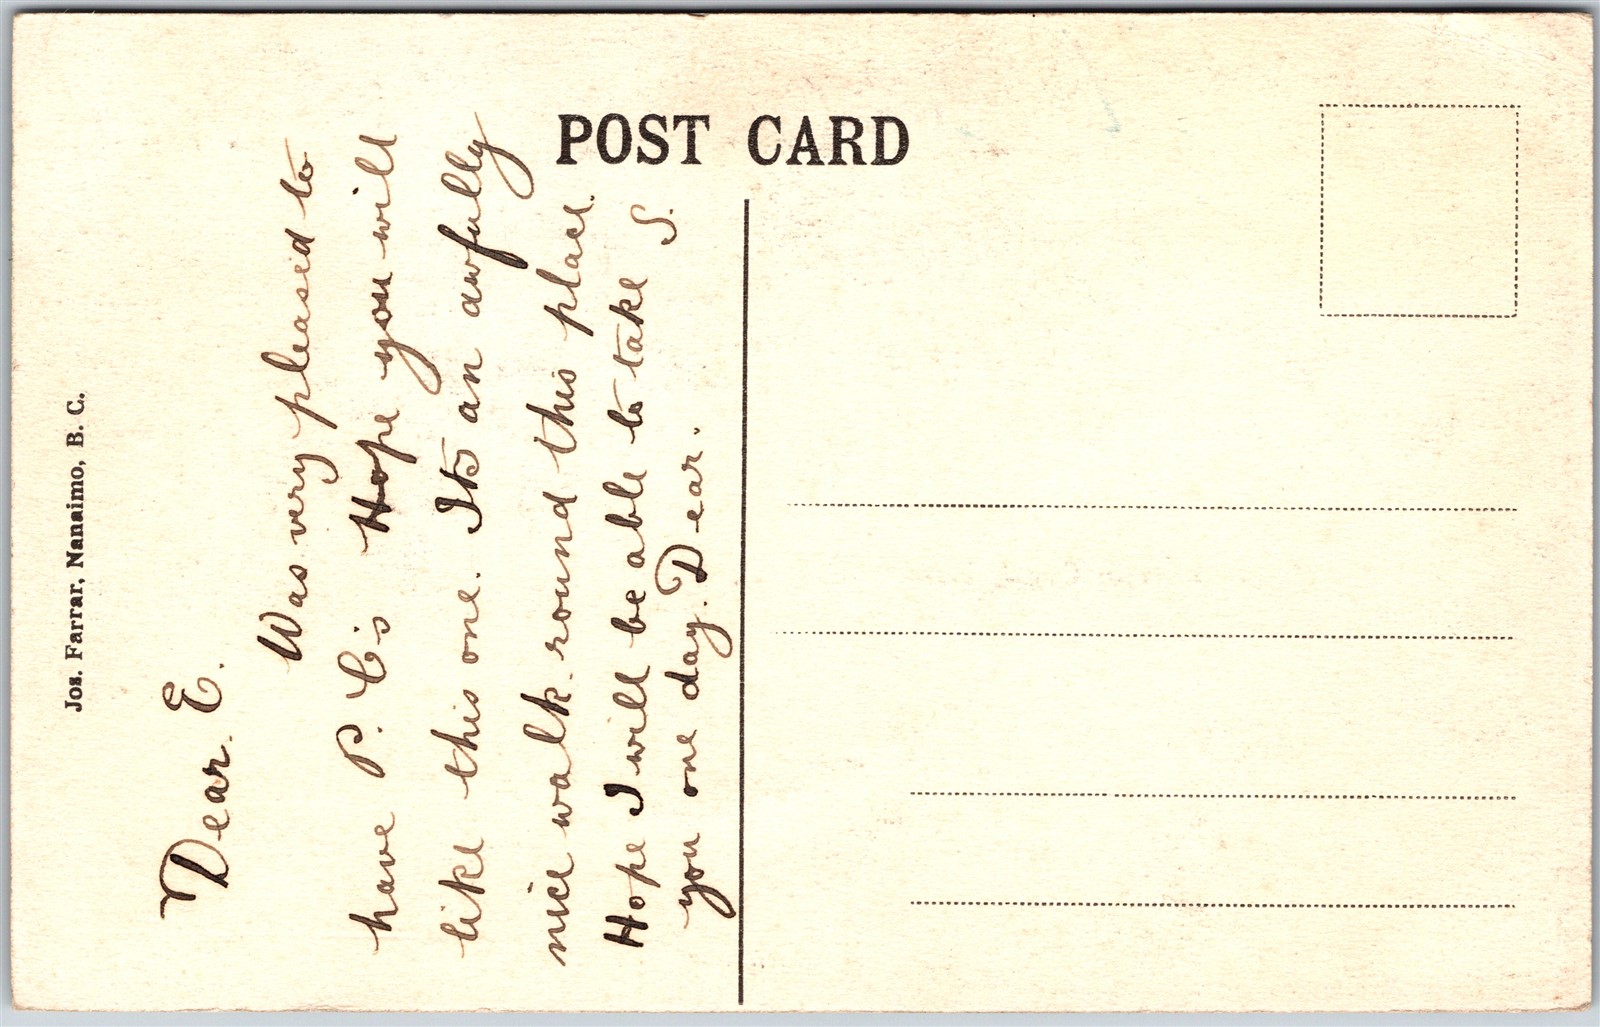 POST CARD
Jos. Farrar, Nanaimo, B. C.
Dear. E.
Was very pleased to
have P. C's Hope you will
like this one. Its an awfully
nice walk round this place.
Hope I will be able to take
you one day. Dear. S.